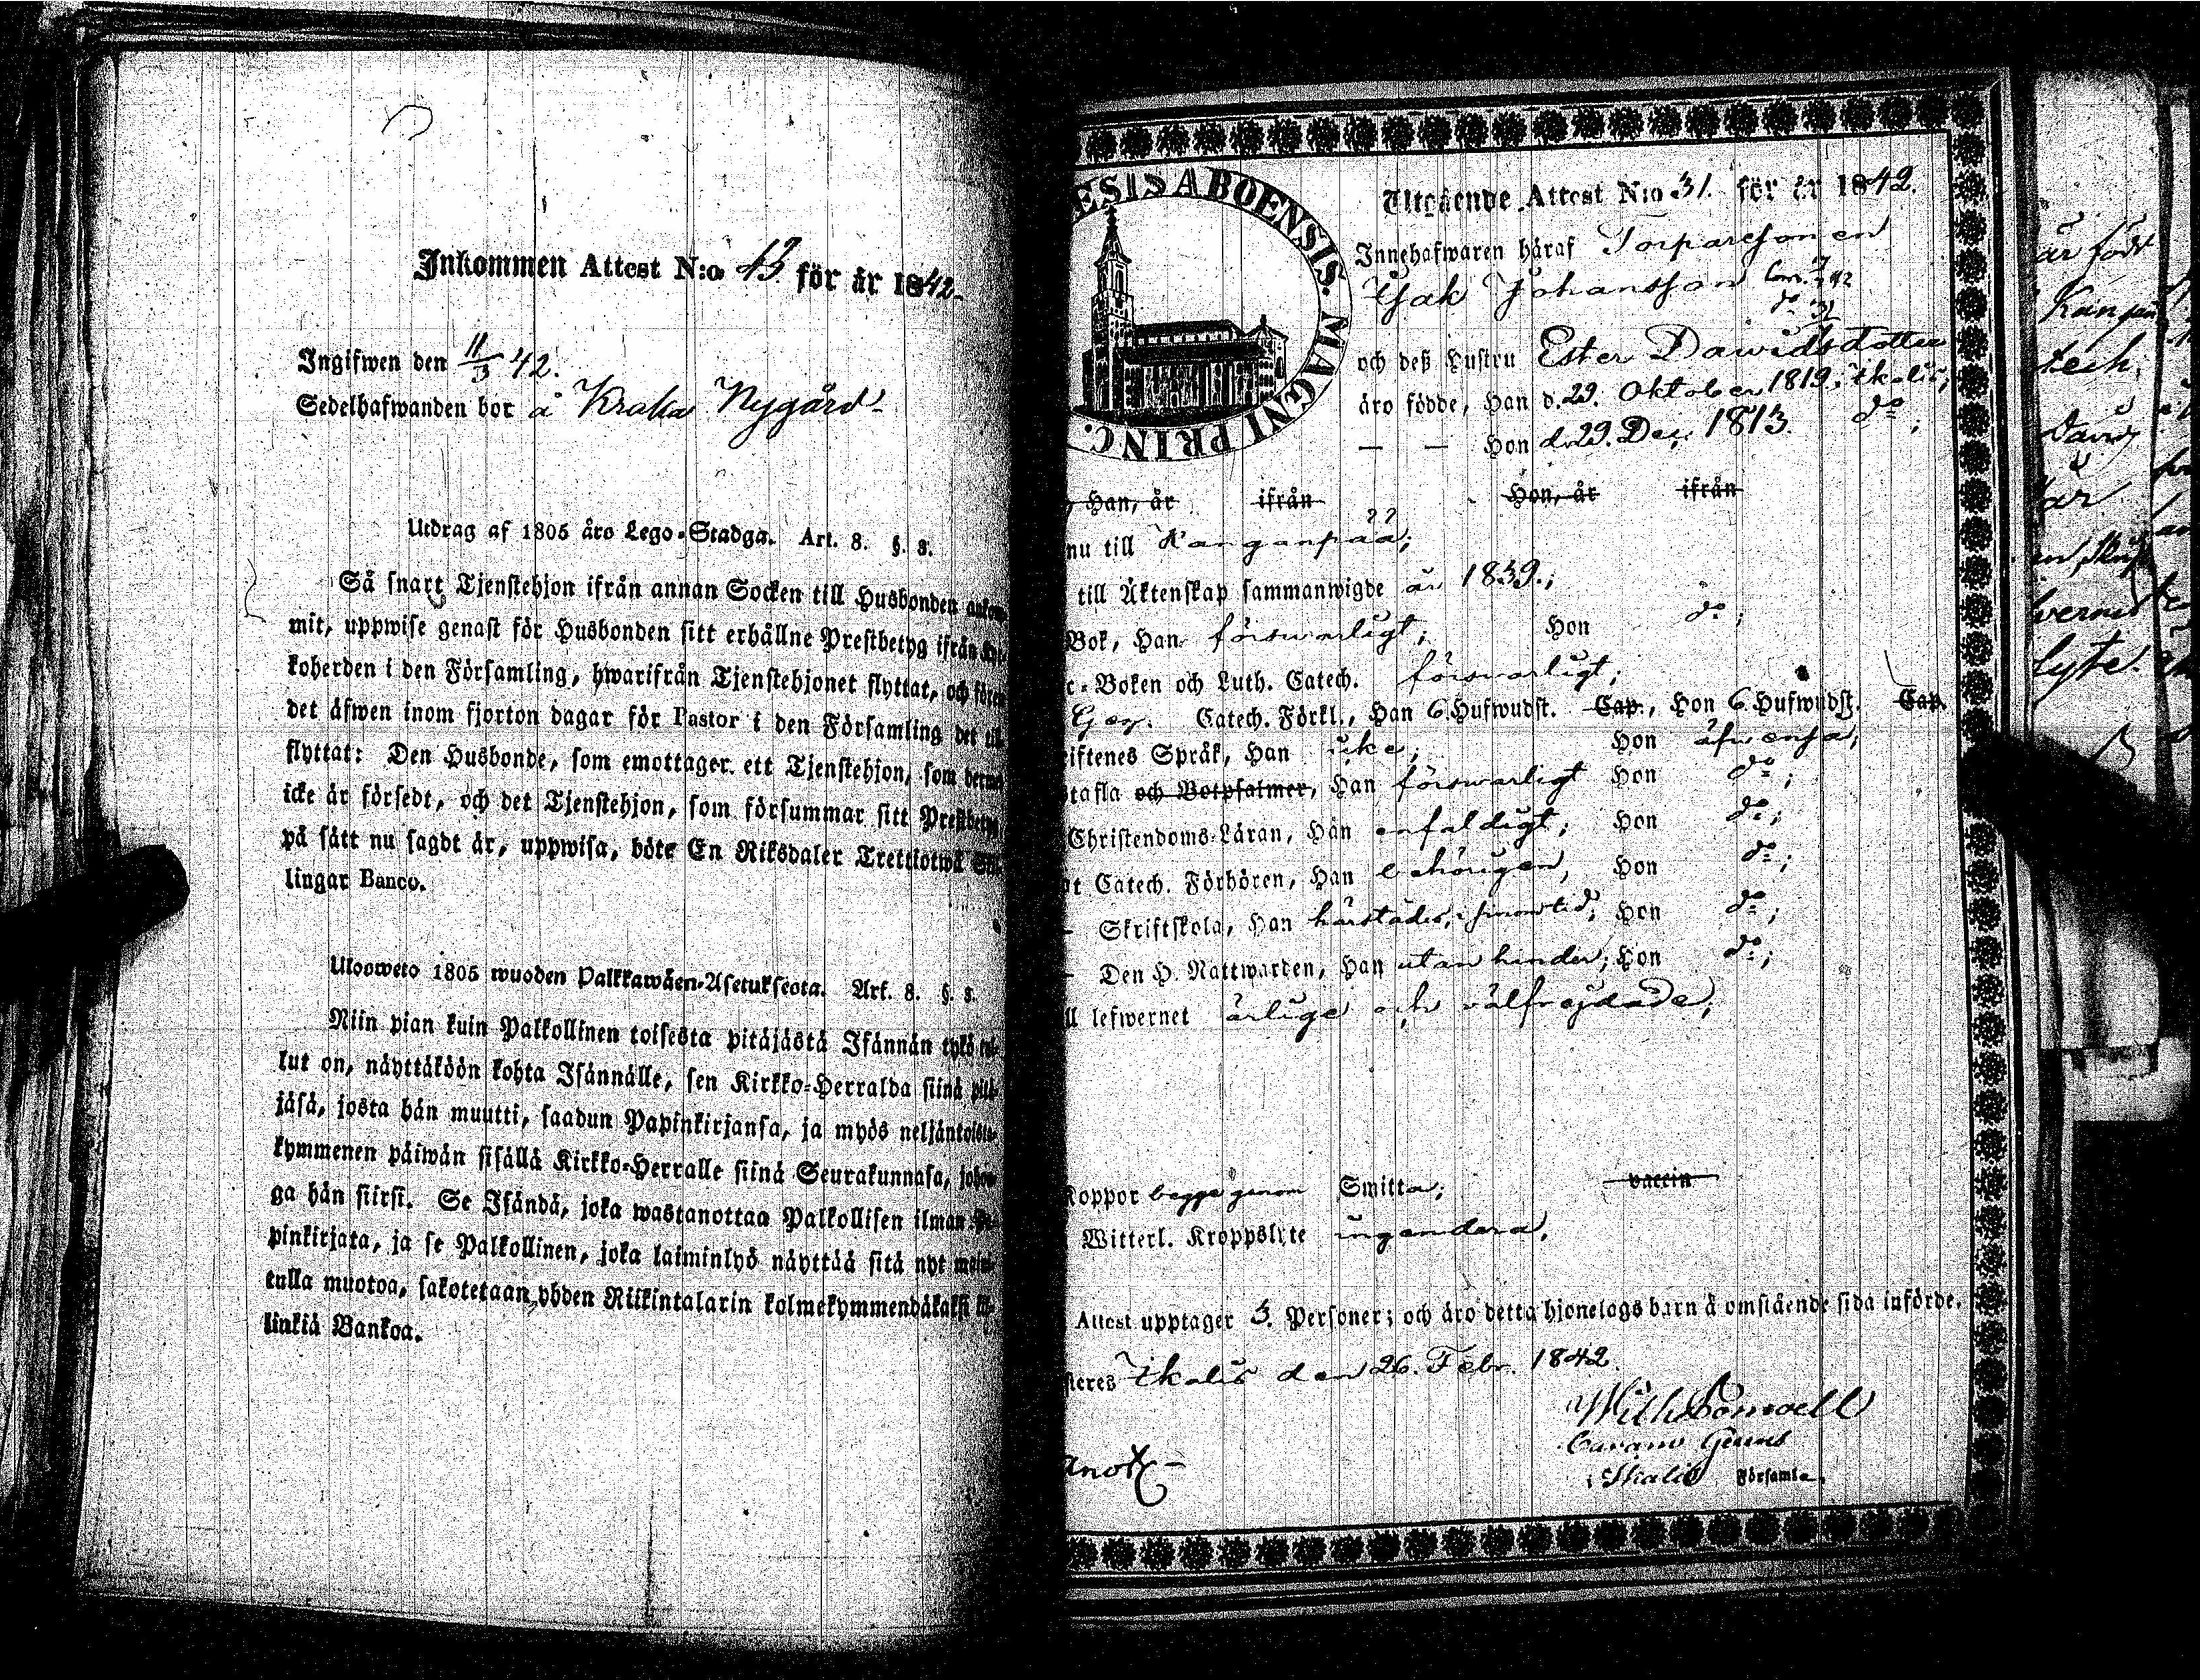 Inkommen Attest N:o 13. för år 1842.
Ingifwen den 11/3 42.
Sedelhafwanden bor å Kraka Nygård
Utdrag af 1805 års Lego-Stadga. Art. 8. §. 8.
Så snart Tjenstehjon ifrån annan Socken till Husbonden ankom-
mit, uppwise genast för Husbonden sitt erhållne Prestbetyg ifrån Kyr-
koherden i den Församling, hwarifrån Tjenstehjonet flyttat, och före
det äfwen inom fjorton dagar för Pastor i den Församling det till-
flyttat: Den Husbonde, som emottager ett Tjenstehjon, som dermed
icke är försedt, och det Tjenstehjon, som försummar sitt Prestbetyg
på sätt nu sagdt är, uppwisa, böte En Riksdaler Trettiotwå Skil-
lingar Banco.
Ulosweto 1805 wuoden Palkkawäen-Asetuksesta. Art. 8. §. 8.
Niin pian kuin Palkollinen toisesta pitäjästä Isännän tykö tul-
lut on, näyttäköön kohta Isännälle, sen Kirkko-Herralda siinä pitä-
jäsä, josta hän muutti, saadun Papinkirjansa, ja myös neljäntoista-
kymmenen päiwän sisällä Kirkko-Herralle siinä Seurakunnasa, johon-
ga hän siirsi. Se Isändä, joka wastanottaa Palkollisen ilman Pa-
pinkirjata, ja se Palkollinen, joka laiminlyö näyttää sitä nyt mai-
tulla muotoa, sakotetaan yhden Riikintalarin kolmekymmendäkaksi kil-
linkiä Bankoa.
ESIS ABOENSIS. MAGNI PRINC.
Utgående Attest N:o 31. för år 1842.
Innehafwaren häraf Torparesonen
Isak Johansson
och deß Hustru Ester Dawidsdotter
äro födde, Han d. 29. Oktober 1819 i Ikalis,
— — Hon d. 29. Dec. 1813. do,
Han, är ifrån Hon, är ifrån
nu till Kanganpää;
till Äktenskap sammanwigde år 1839.;
Bok, Han förswarligt; Hon do;
c-Boken och Luth. Catech. förswarligt;
Catech. Förkl., Han 6. Hufwudst. Cap., Hon 6. Hufwudst. Cap.
iftenes Språk, Han icke; Hon äfwensa;
tafla och Botpsalmer, Han förswarligt Hon do;
Christendoms-Läran, Han enfaldigt; Hon do;
pt Catech. Förhören, Han behörigen, Hon do;
— Skriftskola, Han härstädes, i sinom tid; Hon do;
— Den H. Nattwarden, Han utan hinder; Hon do;
ll lefwernet ärlige och välfrejdade;
Koppor begge genom Smitta; vaccin
Witterl. Kroppslyte ingendera.
Attest upptager 3. Personer; och äro detta hjonelags barn å omstående sida införde.
steres Ikalis den 26. Febr. 1842
Ikalis Församl.
är född